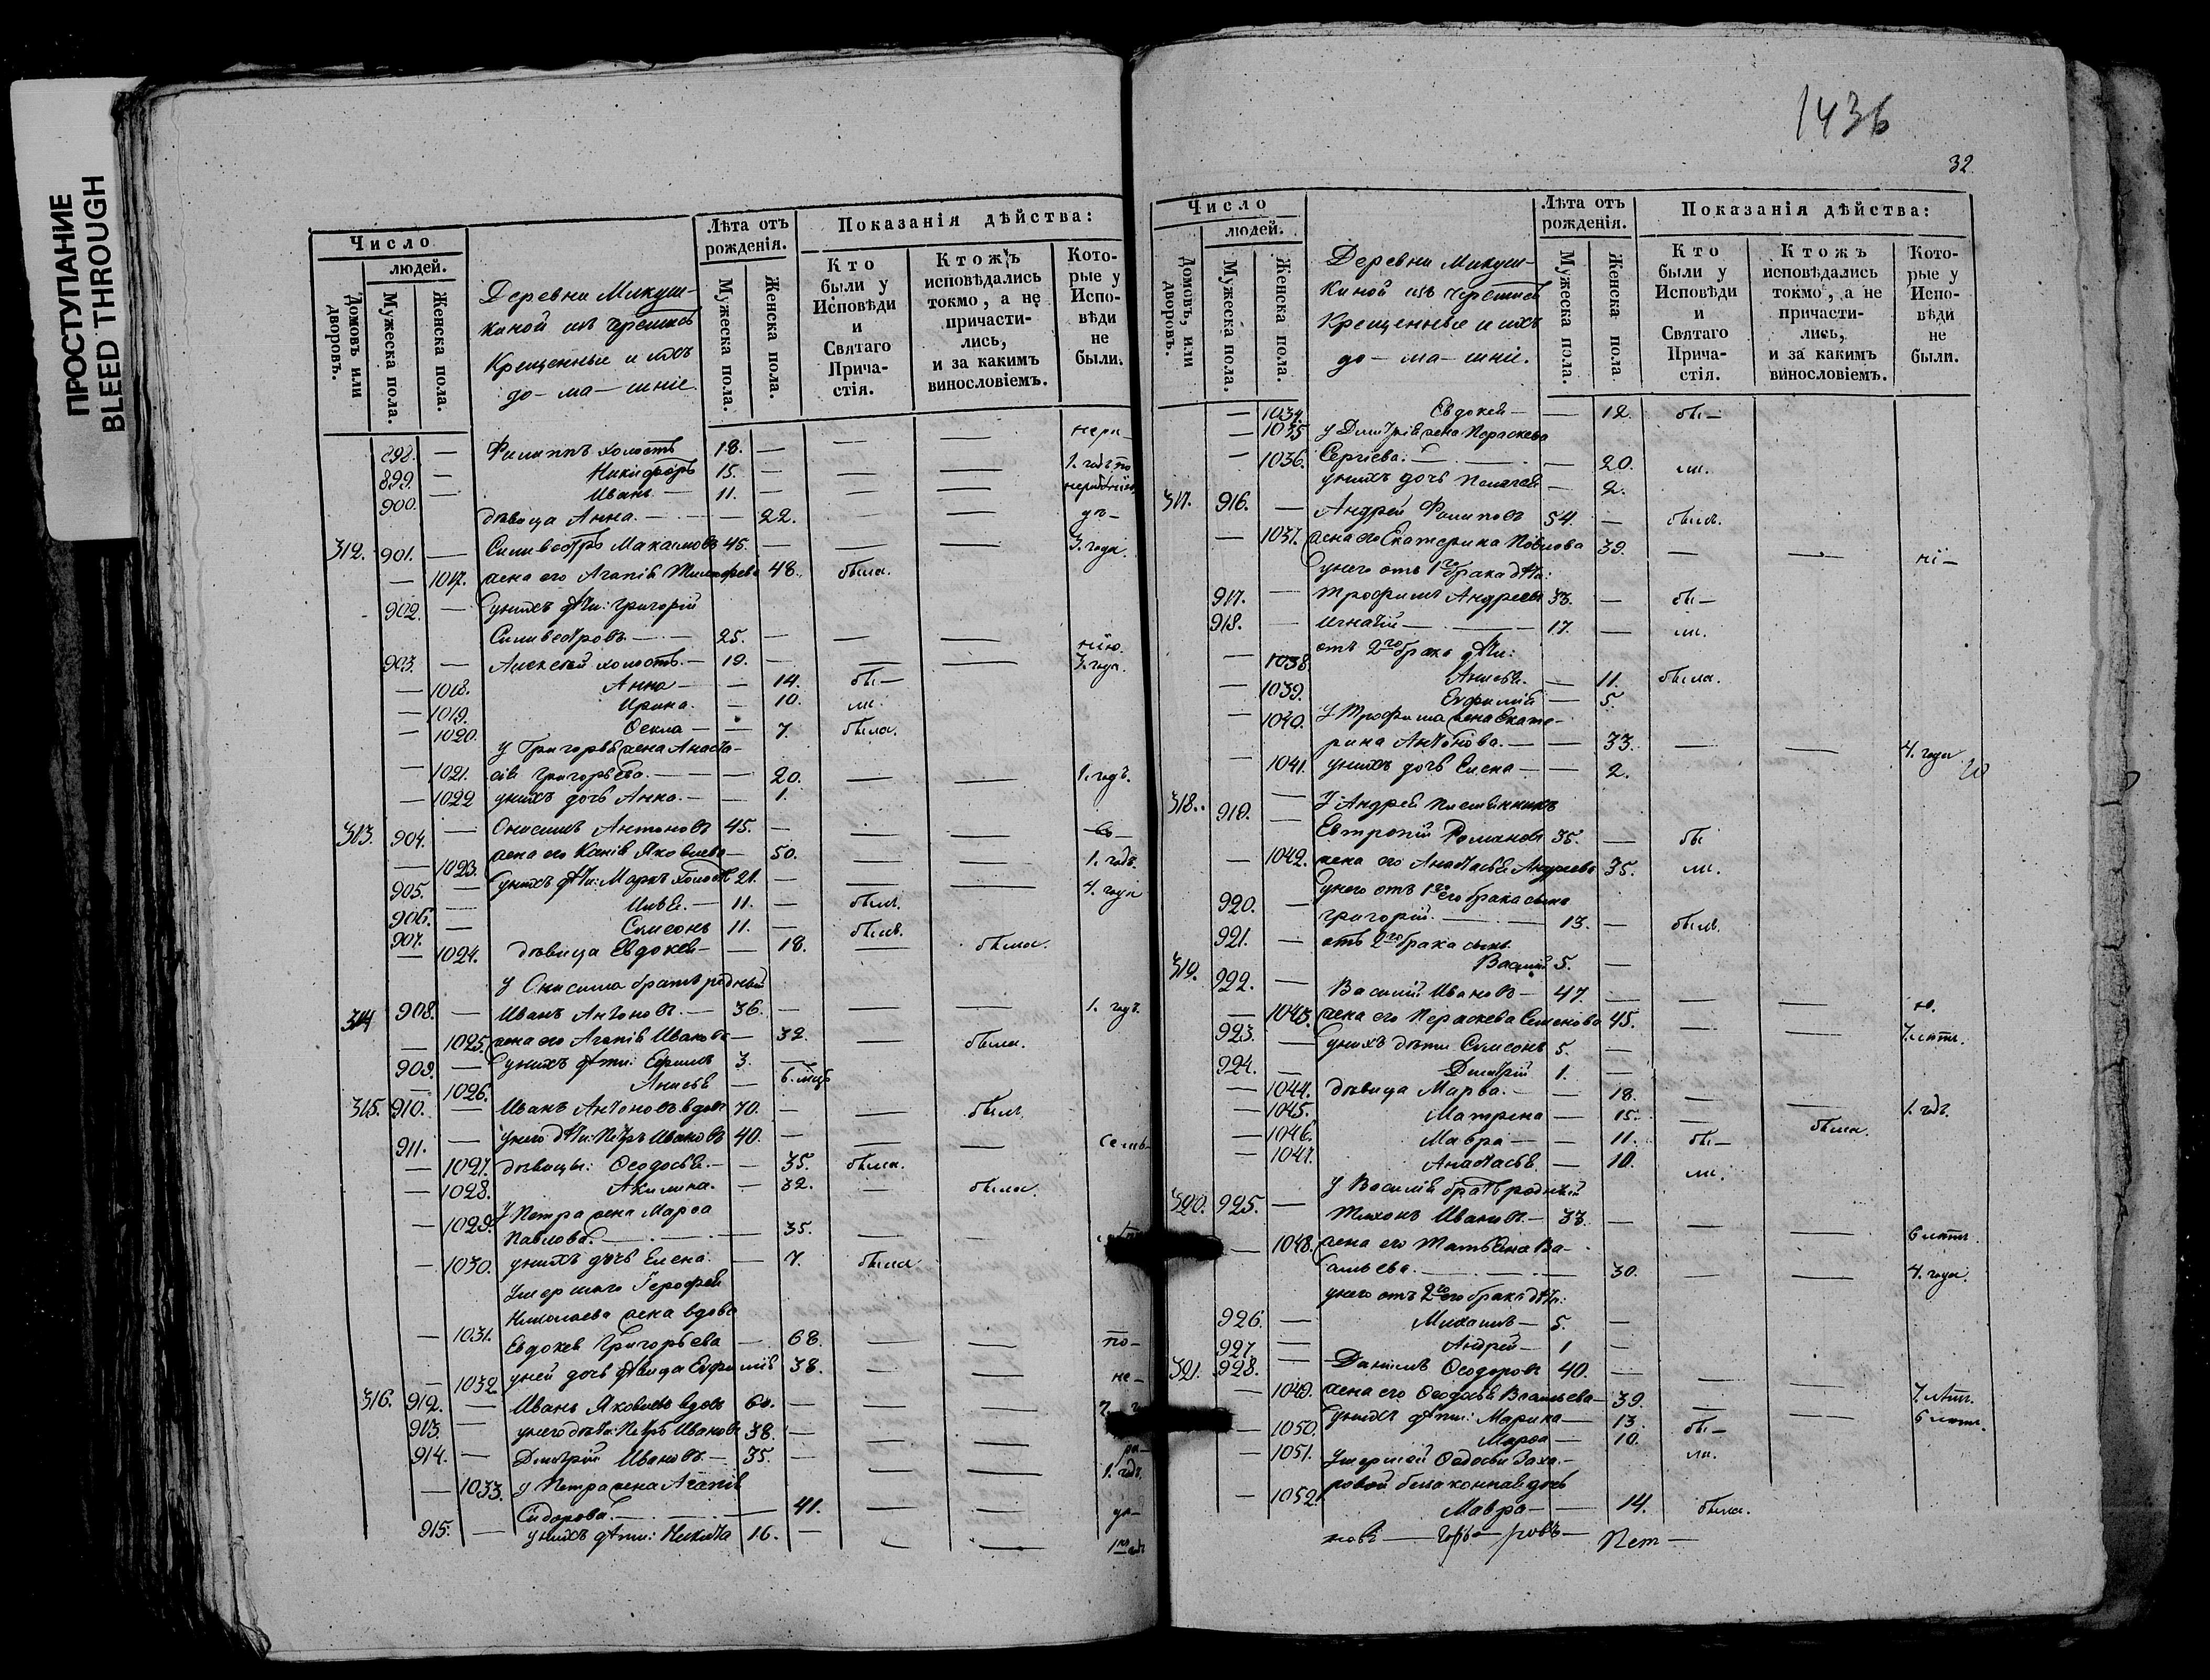 ПРОСТУПАНИЕ
BLEED THROUGH
Число
людей.
Домовъ или дворовъ.
Мужеска пола.
Женска пола.
Деревни Микуш-
киной изъ черемисъ
Крещенные и ихъ
до- ма- шніе
Лѣта отъ рожденія.
Мужеска пола.
Женска пола.
Показанія дѣйства:
Кто были у Исповѣди и Святаго Прича-стія.
Ктожъ исповѣдались токмо, а не причасти-лись, и за какимъ винословіемъ.
Кото-рые у Испо-вѣди не были.
898. — Филиппъ холостъ 18. — — —
899. — Никифоръ 15. — — — 1. годъ по
900. — Иванъ — 11. — — —
дѣвица Анна. — — 22. — —
312. 901. — Сильвестръ Максимовъ 45. — — — 3. года
— 1017. жена его Агапія Тимофеева 48. была.
902. — у нихъ дѣти: Григорій
Сильвестровъ — 25. — — —
903. — Алексѣй холостъ. — 19. — — — 3. года.
— 1018. Анна — — 14. бы —
— 1019. Ирина. — 10. ли.
— 1020. Ѳекла — — 7. была.
у Григорья жена Анаста-
— 1021. сія Григорьева. — — 20. — — 1. годъ.
— 1022 у нихъ дочь Анна. — — 1.
313. 904. — Онисимъ Антоновъ 45. — — —
— 1023. жена его Ксенія Яковлева — 50. — — 1. годъ.
905. — у нихъ дѣти: Маркъ холостъ 21. — — — 4. года
906. — Илья. — 11. — былъ.
907. — Симеонъ 11. — былъ.
— 1024. дѣвица Евдокея — — 18. — была.
у Онисима братъ родный
314 908. — Иванъ Антоновъ. — 36. — — — 1. годъ.
— 1025. жена его Агапія Иванова — 32. была.
909. — у нихъ дѣти: Ефимъ 3. —
— 1026. Анисья — 6. мѣсц
315. 910. — Иванъ Антоновъ вдовъ 70. — — былъ.
911. — у него дѣти: Петръ Ивановъ 40. — — — семь
— 1027. дѣвицы: Ѳеодосья. — — 35. была.
— 1028. Акилина. — 32. — была.
— 1029. у Петра жена Марѳа
Павлова. — — 35. —
— 1030. у нихъ дочь Елена. — 7. была
Умершаго Герофей
Николаева жена вдова
— 1031. Евдокея Григорьева — 68. — — по-
— 1032 у ней дочь дѣвица Евфимія 38. — — не-
316. 912. — Иванъ Яковлевъ вдовъ 60. — — —
913. — у него дѣти: Петръ Ивановъ 38. — — —
914. — Дмитрій Ивановъ — 35. — — — 1. годъ.
— 1033. у Петра жена Агапія
Сидорова. — 41. — —
915. — у нихъ дѣти: Никита 16. — — —
1436
32
Число
людей.
Домовъ, или дворовъ.
Мужеска пола.
Женска пола.
Деревни Микуш-
киной изъ черемисъ
Крещенные и ихъ
до- ма- шніе.
Лѣта отъ рожденія.
Мужеска пола.
Женска пола
Показанія дѣйства:
Кто были у Исповѣди и Святаго Прича-стія.
Ктожъ исповѣдались токмо, а не причасти-лись, и за какимъ винословіемъ.
Кото-рые у Испо-вѣди не были.
— 1034. Евдокея — — 12. бы —
— 1035 у Дмитрія жена Параскева
— 1036. Сергіева. — — 20. ли.
у нихъ дочь Пелагея — 2.
317. 916. — Андрей Филиповъ 54. — былъ.
— 1037. жена его Екатерина Павлова 39. — —
у него отъ 1го брака дѣти:
917. — Трофимъ Андреевъ 33. — бы —
918. — Игнатій — 17. — ли.
отъ 2го брака дѣти:
— 1038. Анисья. — 11. была.
— 1039. Евфимія — 5.
— 1040. у Трофима жена Екате-
рина Антонова. — — 33. — — 4. года
— 1041. у нихъ дочь Елена — — 2.
318. 919. — У Андрея племянникъ
Евтропій Романовъ 35. — бы
— 1042. жена его Анастасья Андреева 35. ли.
у него отъ 1го его брака сынъ
920. — Григорій. — 13. — былъ.
921. — отъ 2го брака сынъ
Василій 5. —
319. 922. — Василій Ивановъ — 47. — — —
— 1043. жена его Параскева Семенова 45. — — 7. лѣтъ.
923. — у нихъ дѣти Симеонъ 5. —
924. — Дмитрій 1. —
— 1044. дѣвица Марва. — — 18. — — 1. годъ.
— 1045. Матрена — 15. — была.
— 1046. Мавра — — 11. бы —
— 1047. Анастасья — 10. ли.
У Василія братъ родный
320. 925. — Тихонъ Ивановъ — 33. — — — 6 лѣтъ.
— 1048. жена его Татьяна Ва-
сильева. — — 30. — — 4. года.
у него отъ 2го его брака дѣти:
926. — Михаилъ — 5. —
927. — Андрей — 1 —
321. 928. — Даниилъ Ѳеодоровъ 40. — — — 7. лѣтъ.
— 1049. жена его Ѳеодосья Власьева 39. — — 6 лѣтъ.
— 1050. у нихъ дѣти: Марина — 13. бы —
— 1051. Марѳа — 10. ли.
Умершей Ѳедосьи Заха-
ровой беззаконная дочь
— 1052 Мавра — 14. была.